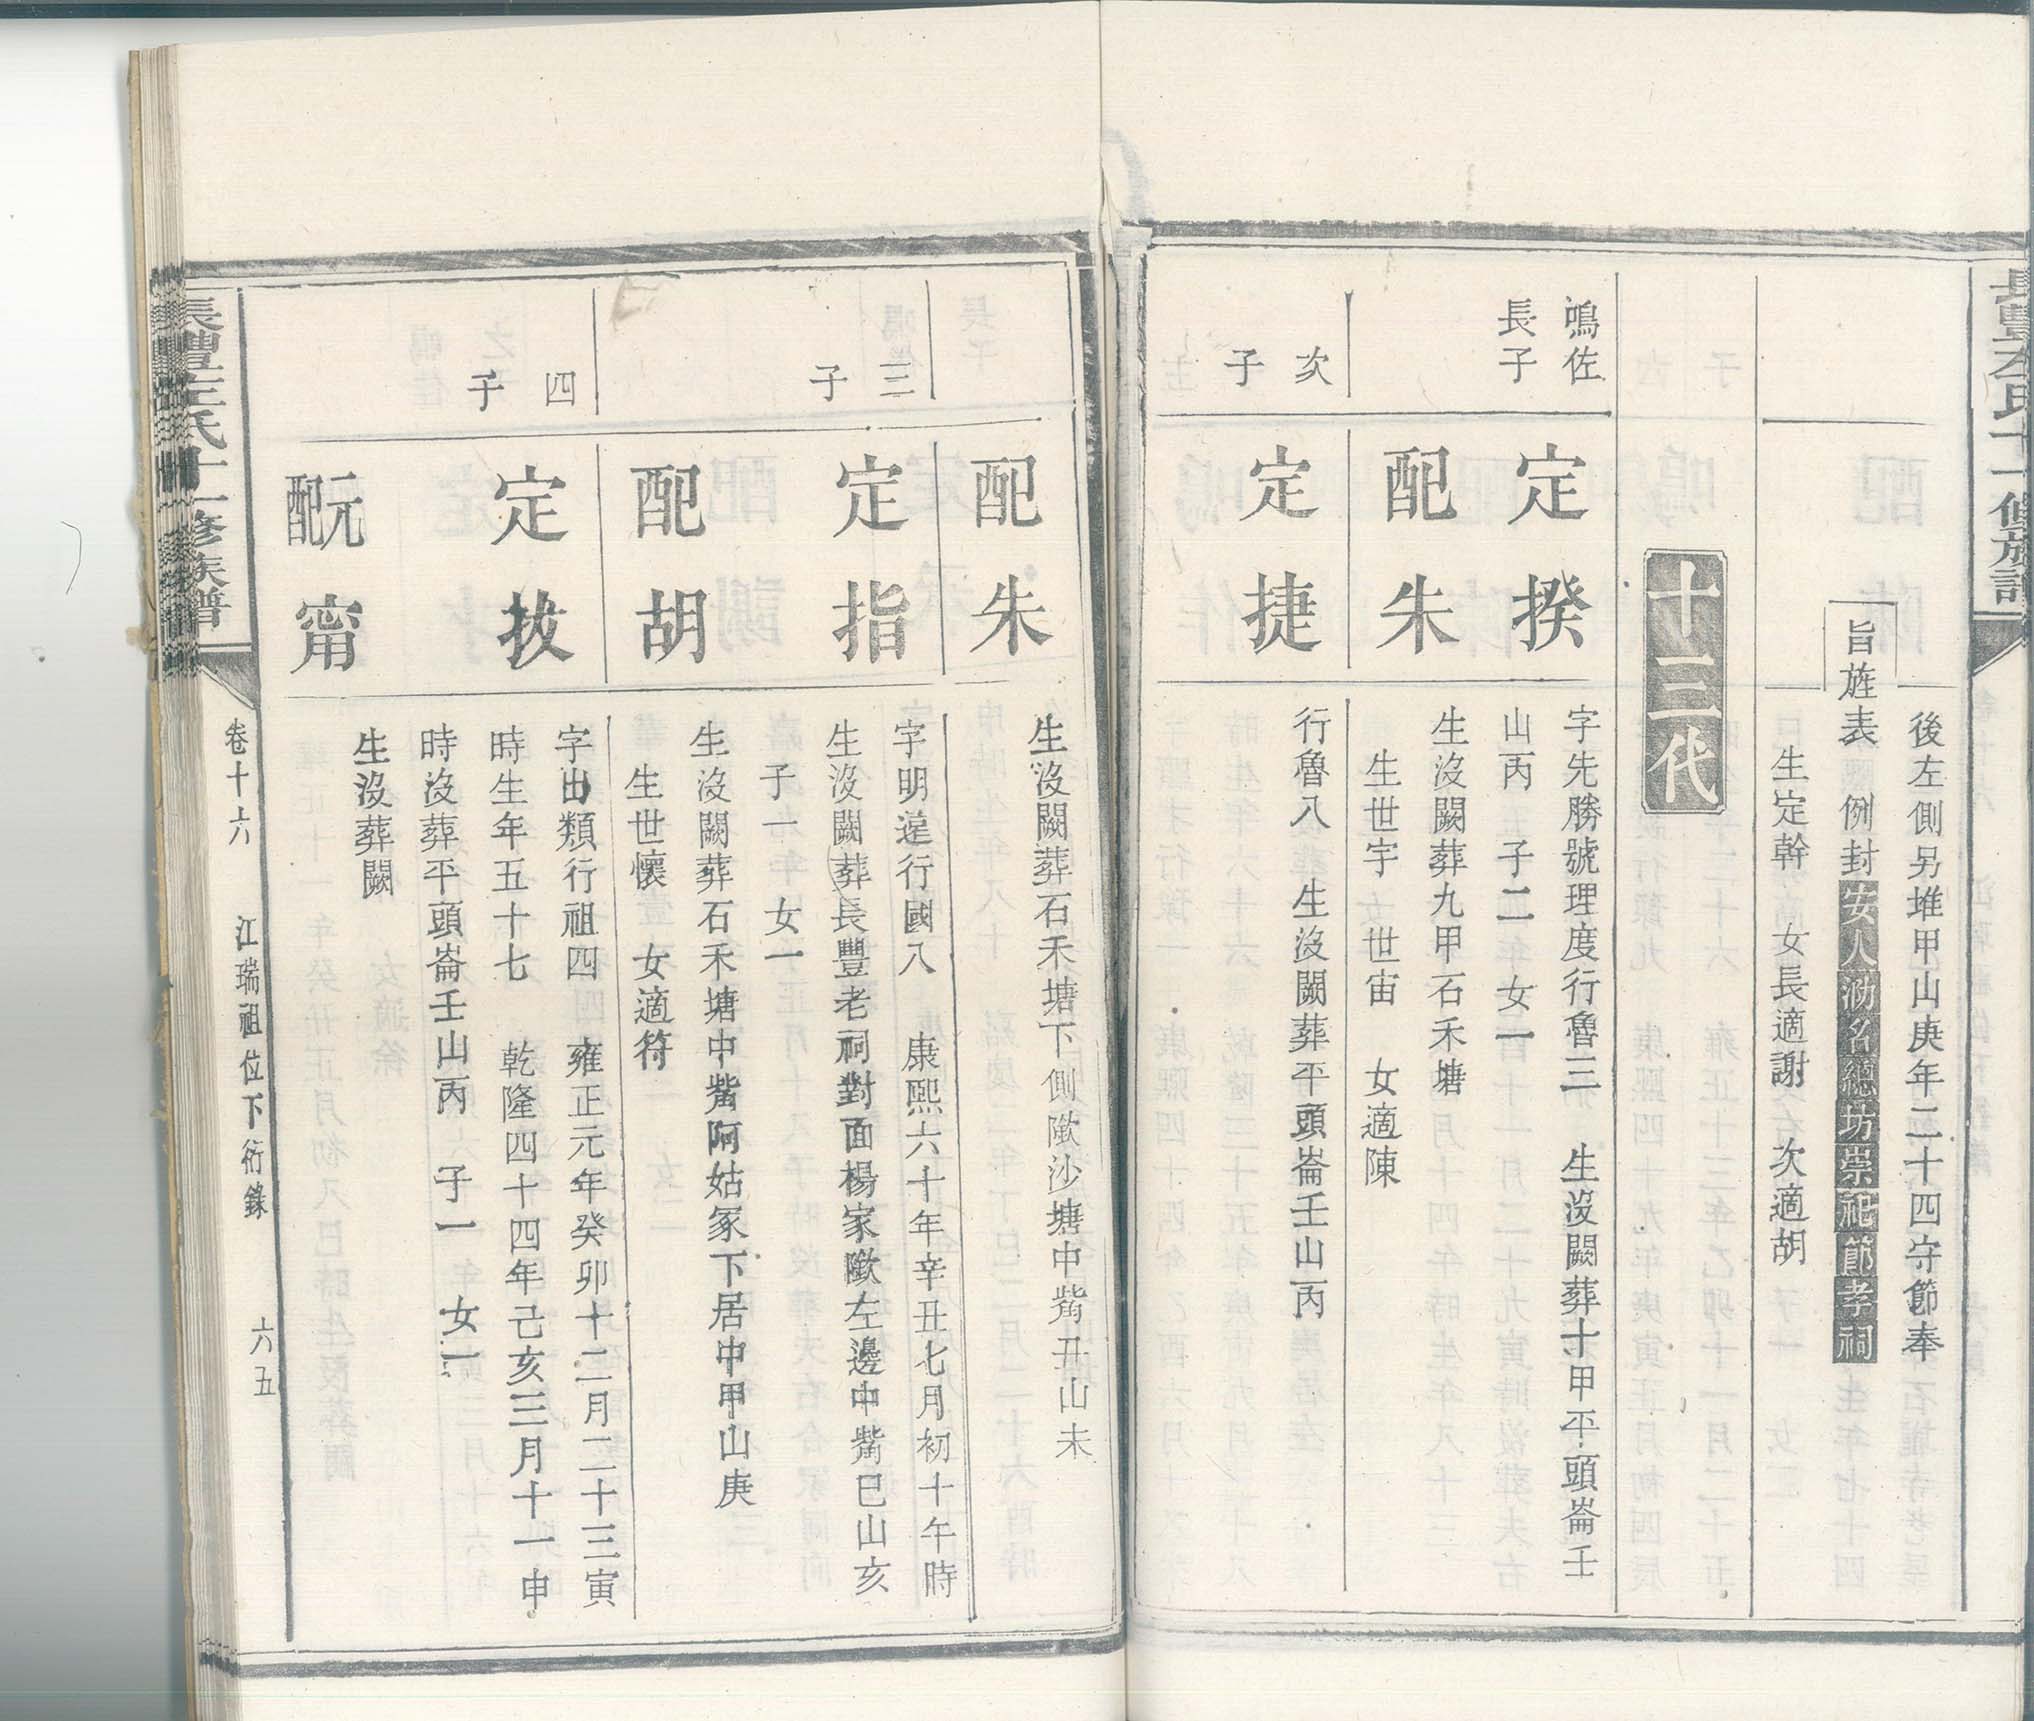 後左側另堆甲山庚年二十四守節奉
旨旌表 例封安人泐名總坊崇祀節孝祠
生定幹 女長適謝 次適胡
十三代
鳴佐
長子
定揆
字先勝號理度行魯三 生沒闕葬十甲平頭崙壬
山丙 子二 女一
配朱
生沒闕葬九甲石禾塘
生世宇 世宙 女適陳
次
子
定捷
行魯八 生沒闕葬平頭崙壬山丙
配朱
生沒闕葬石禾塘下側塅沙塘中觜丑山未
三
子
定指
字明達行國八 康熙六十年辛丑七月初十午時
生沒闕葬長豐老祠對面楊家塅左邊中觜巳山亥
子一 女一
配胡
生沒闕葬石禾塘中觜阿姑冢下居中甲山庚
生世懷 女適符
四
子
定拔
字出類行祖四 雍正元年癸卯十二月二十三寅
時生年五十七 乾隆四十四年己亥三月十一申
時沒葬平頭崙壬山丙 子一 女一
元配甯
生沒葬闕
長豐左氏十一修族譜
卷十六 江瑞祖位下衍錄 六五